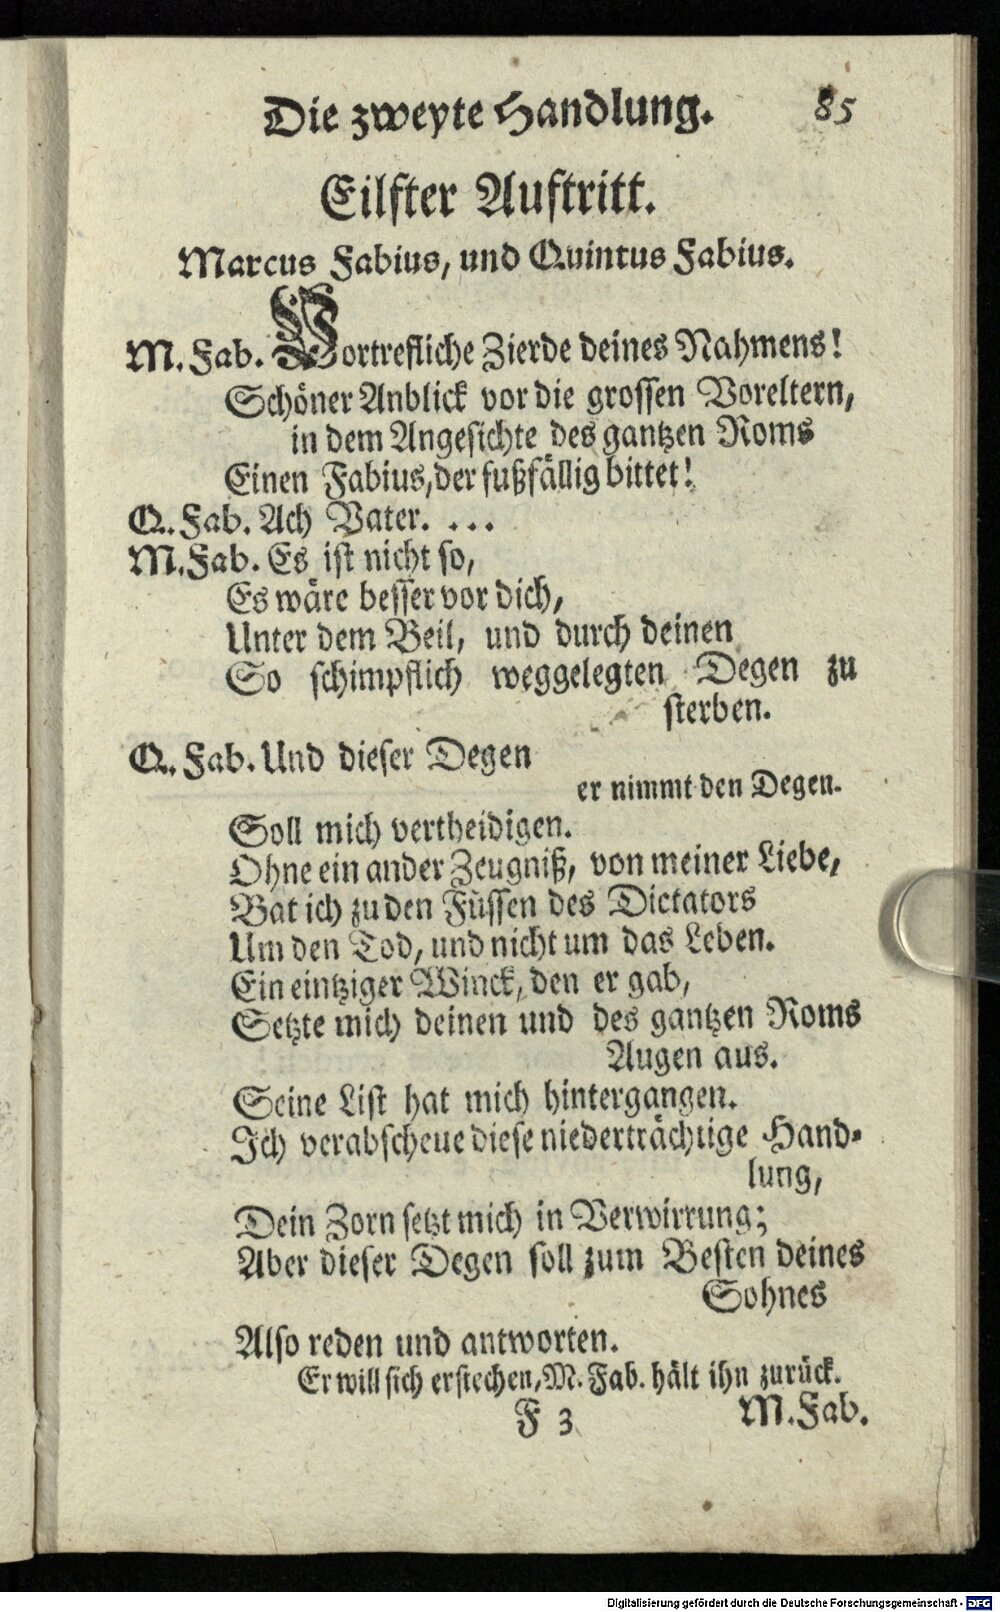 Die zweyte Handlung. 85
Eilfter Auftritt.
Marcus Fabius, und Quintus Fabius.
M. Fab. Vortrefliche Zierde deines Nahmens!
Schöner Anblick vor die grossen Voreltern,
in dem Angesichte des gantzen Roms
Einen Fabius, der fußfällig bittet!
Q. Fab. Ach Vater. ...
M. Fab. Es ist nicht so,
Es wäre besser vor dich,
Unter dem Beil, und durch deinen
So schimpflich weggelegten Degen zu
sterben.
Q. Fab. Und dieser Degen
er nimmt den Degen.
Soll mich vertheidigen.
Ohne ein ander Zeugniß, von meiner Liebe,
Bat ich zu den Füssen des Dictators
Um den Tod, und nicht um das Leben.
Ein eintziger Winck, den er gab,
Setzte mich deinen und des gantzen Roms
Augen aus.
Seine List hat mich hintergangen.
Ich verabscheue diese niederträchtige Hand-
lung,
Dein Zorn setzt mich in Verwirrung;
Aber dieser Degen soll zum Besten deines
Sohnes
Also reden und antworten.
Er will sich erstechen, M. Fab. hält ihn zurück.
F 3 M. Fab.
Digitalisierung gefördert durch die Deutsche Forschungsgemeinschaft - DFG